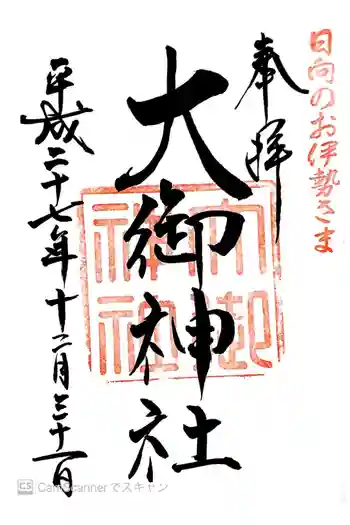 日向のお伊勢さま
奉拝
大御神社
大御神社
平成二十七年十二月三十一日
CS CamScanner でスキャン